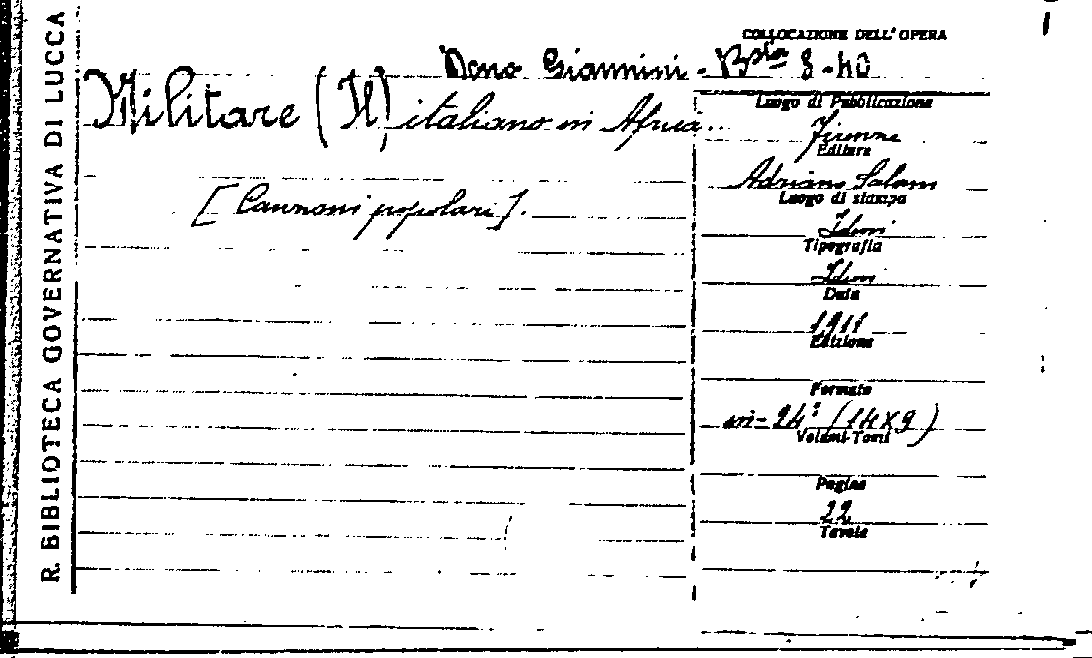 R. BIBLIOTECA GOVERNATIVA DI LUCCA
COLLOCAZIONE DELL' OPERA
Dono Giannini - Bsta 8-40
Militare (Il) italiano in Africa...
[Canzoni popolari].
Luogo di Pubblicazione
Firenze
Editore
Adriano Salani
Luogo di stampa
Idem
Tipografia
Idem
Data
1911
Edizione
Formato
in-24° (14x9)
Volumi-Tomi
Pagine
22
Tavole